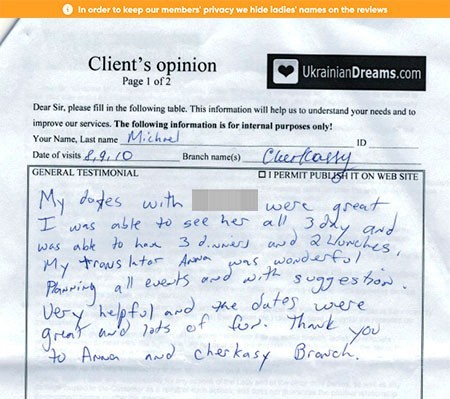 In order to keep our members' privacy we hide ladies' names on the reviews
Client's opinion
Page 1 of 2
UkrainianDreams.com
Dear Sir, please fill in the following table. This information will help us to understand your needs and to
improve our services. The following information is for internal purposes only!
Your Name, Last name Michael ID
Date of visits 8, 9, 10 Branch name(s) Cherkassy
GENERAL TESTIMONIAL
I PERMIT PUBLISH IT ON WEB SITE
My dates with were great
I was able to see her all 3 day and
was able to have 3 dinners and 2 lunches,
My translator Anna was wonderful
Planning all events and with suggestion.
Very helpful and the dates were
great and lots of fun. Thank you
to Anna and cherkasy Branch.